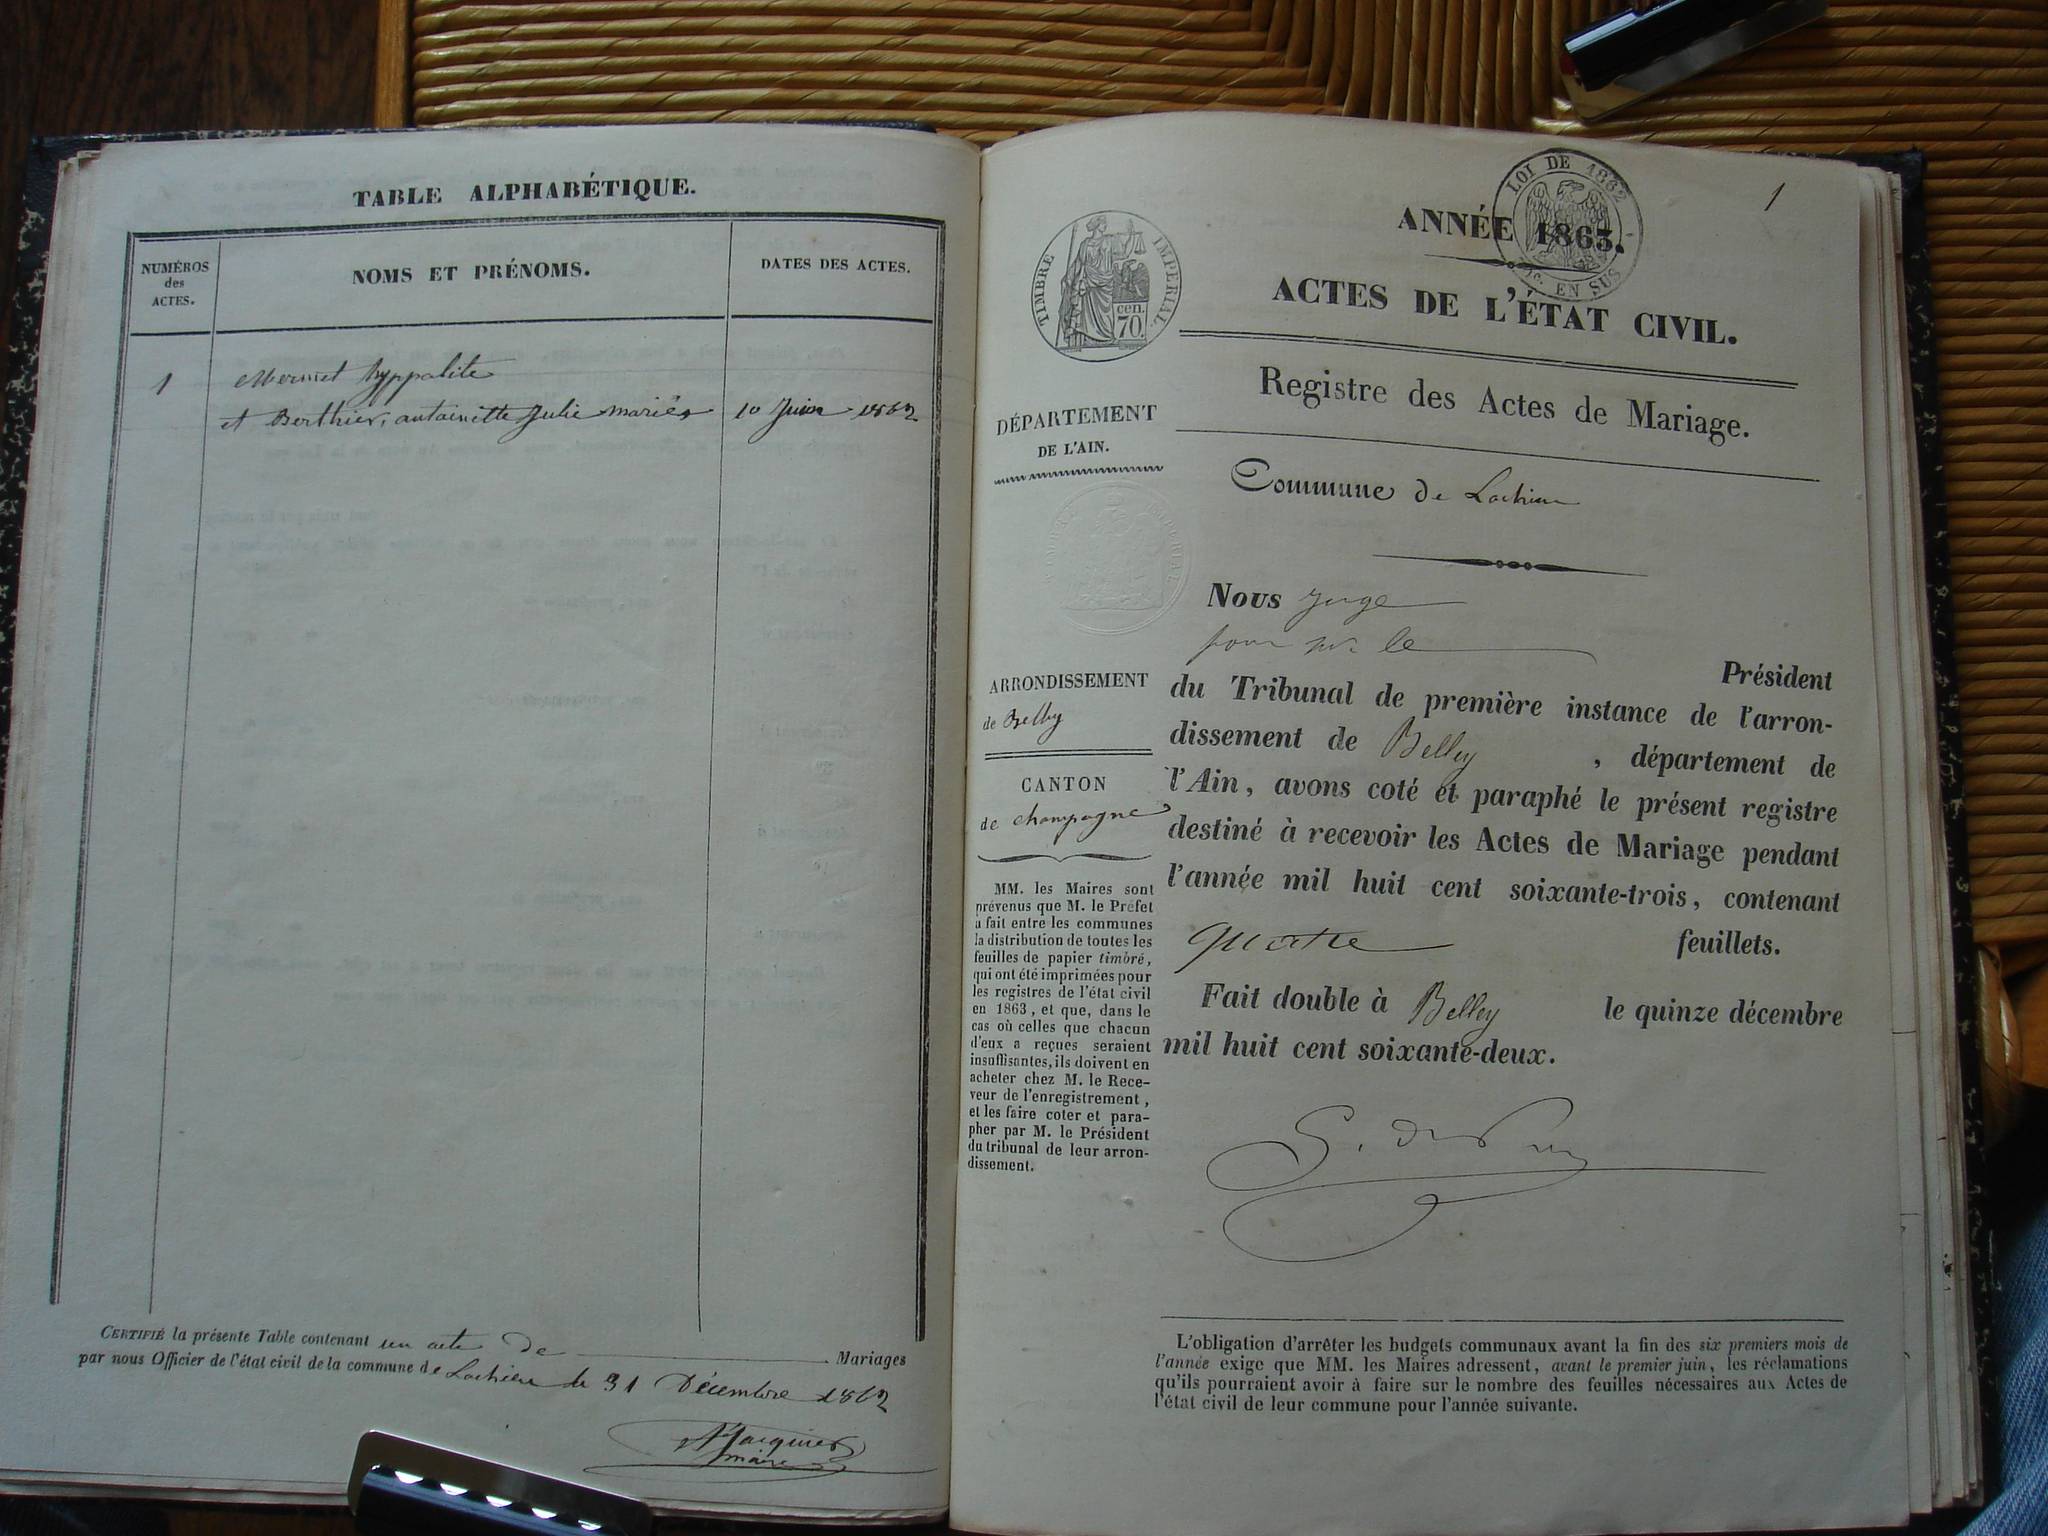 TABLE ALPHABÉTIQUE.
NUMÉROS
des
ACTES.
NOMS ET PRÉNOMS.
DATES DES ACTES.
1
Mermet hyppolite
et Berthier, antoinette Julie mariés
10 Juin 1862
CERTIFIÉ la présente Table contenant un acte de Mariages
par nous Officier de l'état civil de la commune de Lochieu le 31 Décembre 1862
Jacquier
maire
1
LOI DE 1862
EN SUS
ANNÉE 1863.
TIMBRE IMPERIAL
cen.
70.
ACTES DE L'ÉTAT CIVIL.
Registre des Actes de Mariage.
DÉPARTEMENT
DE L'AIN.
Commune de Lochieu
ARRONDISSEMENT
de Belley
CANTON
de champagne
MM. les Maires sont
prévenus que M. le Préfet
a fait entre les communes
la distribution de toutes les
feuilles de papier timbré,
qui ont été imprimées pour
les registres de l'état civil
en 1863, et que, dans le
cas où celles que chacun
d'eux a reçues seraient
insuffisantes, ils doivent en
acheter chez M. le Rece-
veur de l'enregistrement,
et les faire coter et para-
pher par M. le Président
du tribunal de leur arron-
dissement.
Nous Juge
pour le
Président
du Tribunal de première instance de l'arron-
dissement de Belley, département de
l'Ain, avons coté et paraphé le présent registre
destiné à recevoir les Actes de Mariage pendant
l'année mil huit cent soixante-trois, contenant
quatre feuillets.
Fait double à Belley le quinze décembre
mil huit cent soixante-deux.
L'obligation d'arrêter les budgets communaux avant la fin des six premiers mois de
l'année exige que MM. les Maires adressent, avant le premier juin, les réclamations
qu'ils pourraient avoir à faire sur le nombre des feuilles nécessaires aux Actes de
l'état civil de leur commune pour l'année suivante.